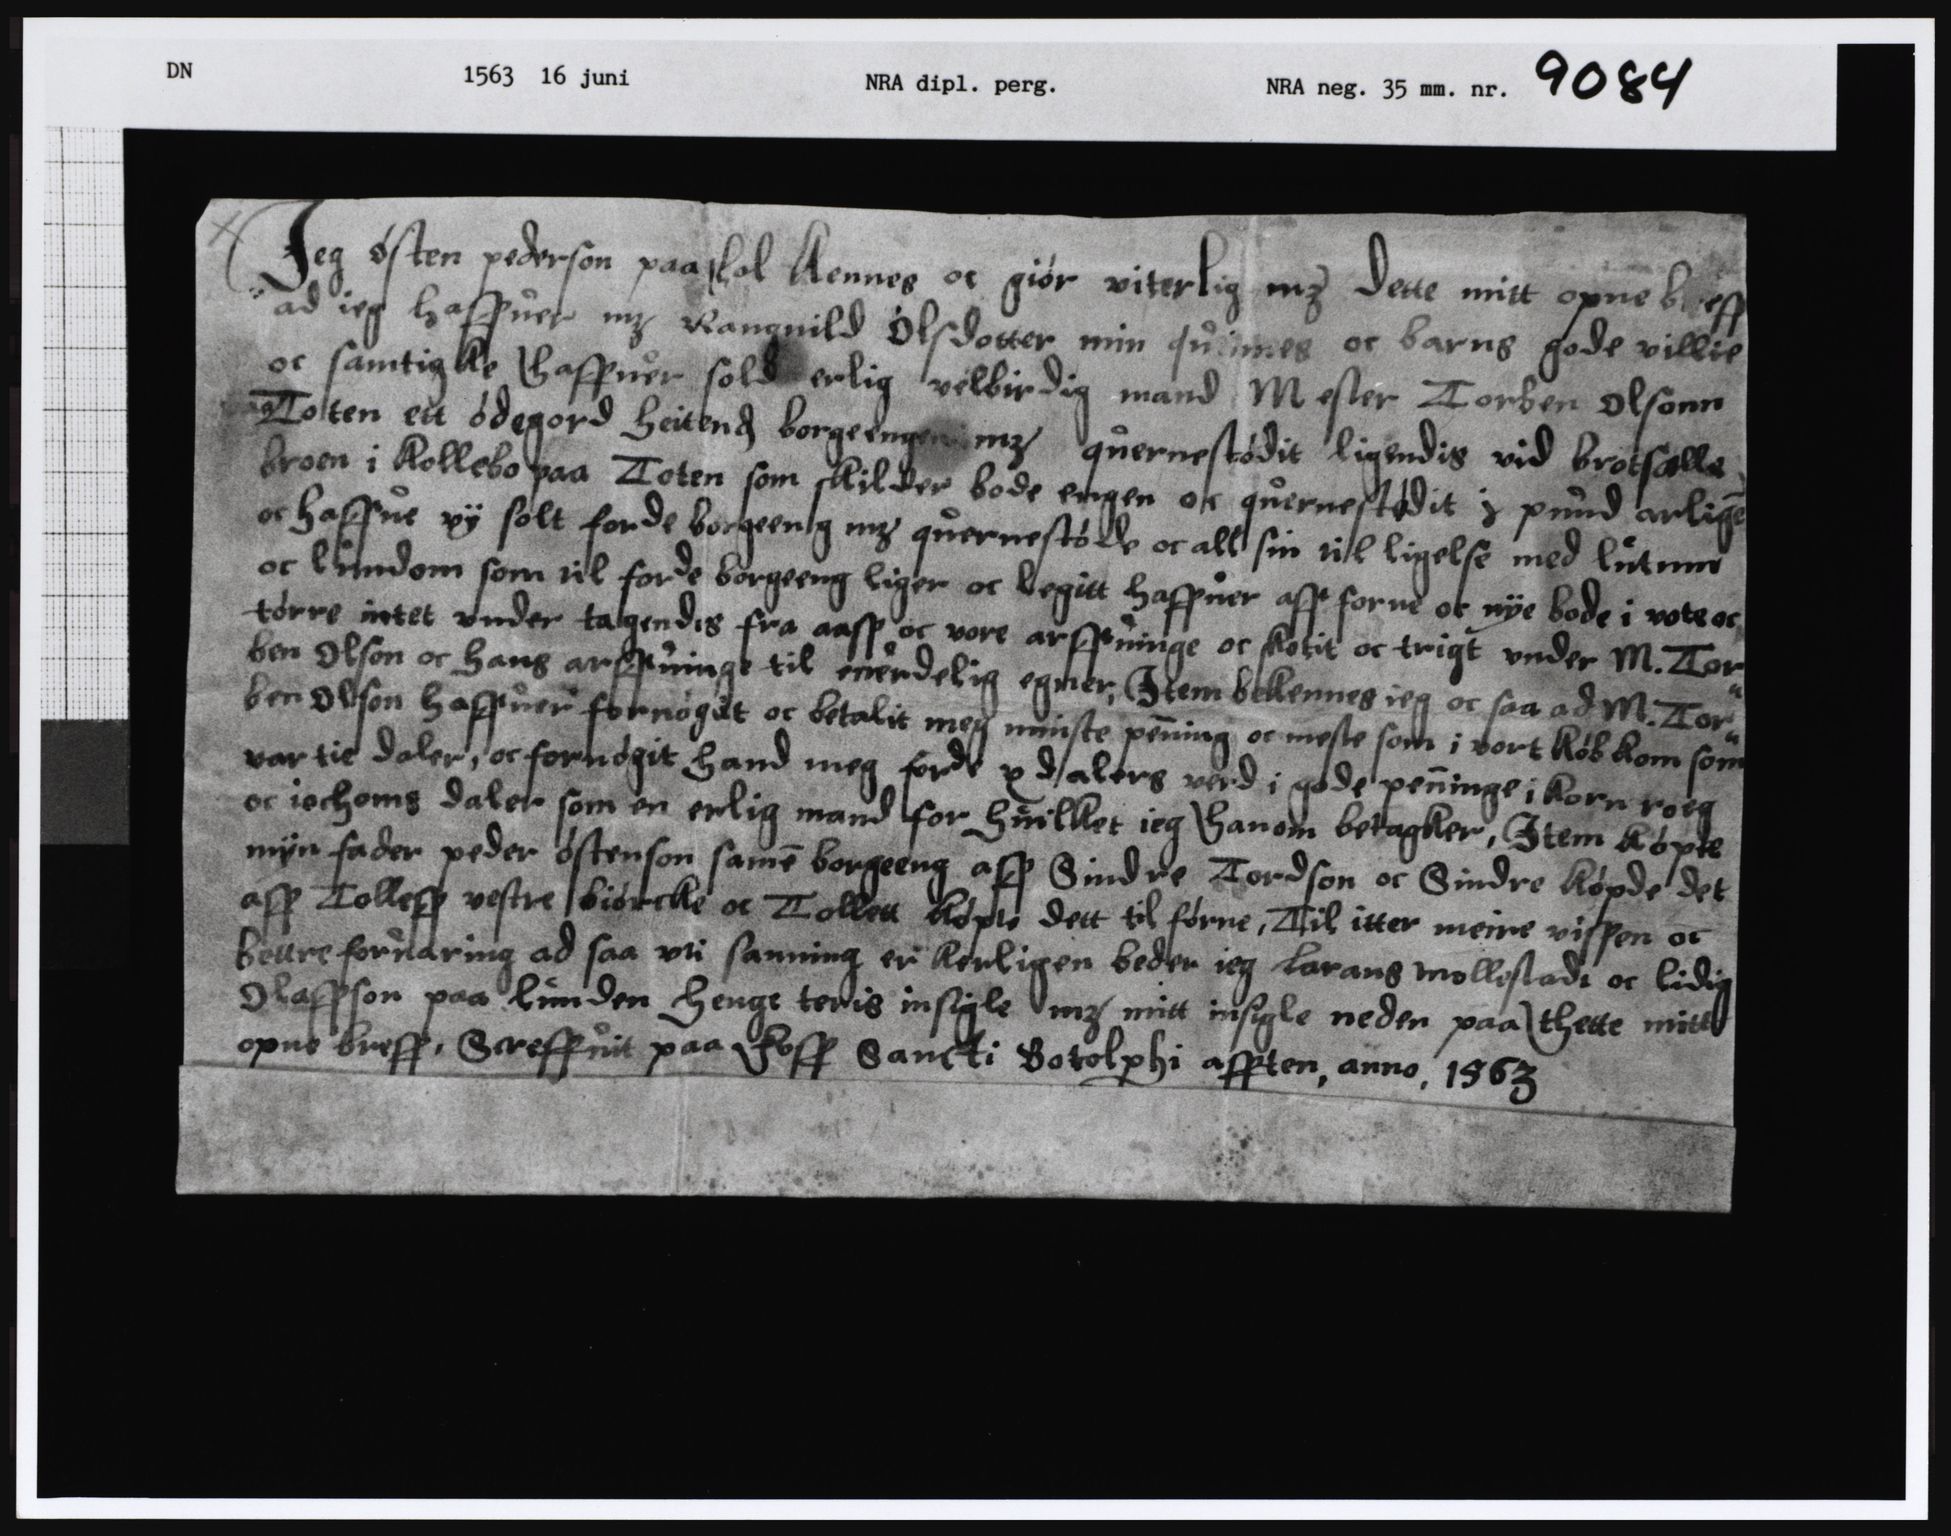 DN 1563 16 juni NRA dipl. perg. NRA neg. 35 mm. nr. 9084
Jeg østen pederson paa kol kennes oc giør viterlig mz dette mitt opne breff
ad ieg haffuer mz Rangnild Olsdotter min quinnes oc barns gode villie
oc samtigkke haffuer sold erlig velbirdig mand Mester Torben Olsonn
Toten ett ødegord heitend borgeengen mz quernestødit ligendis vid brotsælle
broen i kollebo paa Toten som skilder bode engen oc quernestødit j pund arligen
oc haffue vÿ solt forde borgeeng mz quernestøde oc all sin til ligelse med lutum
oc lundom som til forde borgeeng liger oc legitt haffuer aff forne oc nÿe bode i vote oc
tørre intet vnder tagendis fra aass oc vore arffuinge oc skøtit oc trigt vnder M. Tor"
ben Olson oc hans arffuinge til euerdelig egner, Item bekennes ieg oc saa ad M. Tor"
ben Olson haffuer fornøgit oc betalit meg minste penning oc meste som i vort køb kom som
var tie daler, oc fornøgit hand meg forde x dalers verd i gode penninge i korn roeg
oc iochoms daler som en erlig mand for huilket ieg hanom betagker, Item køpte
mÿn fader peder østenson samē borgeeng aff Sindre Tordson oc Sindre køpde det
aff Tolleff vestre biørcke oc Tollett køpte dett til førne, Til itter meire vissen oc
bettre foruaring ad saa vti sanning er kerligen beder ieg Larans mollestade oc lidig
Olaffson paa lunden henge teris insigle mz mitt insigle neden paa thette mitt
opne breff, Screffuit paa Hoff Sancti Botolphi afften, anno, 1563